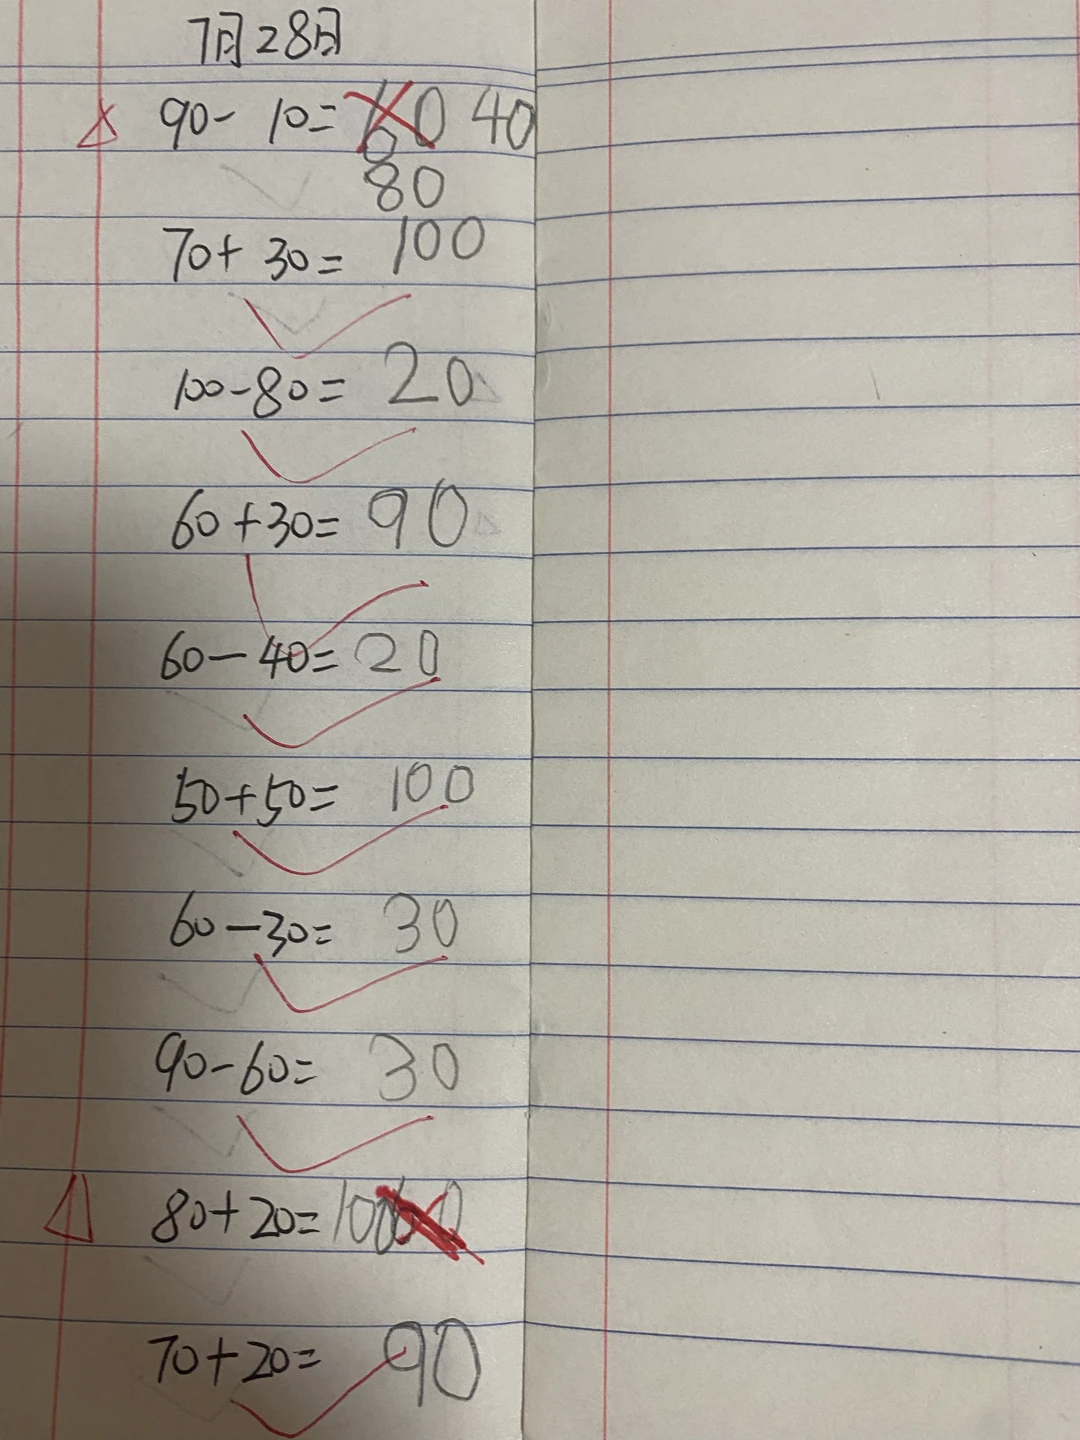 7月28日
90-10=60 40
80
70+30=100
100-80=20
60+30=90
60-40=20
50+50=100
60-30=30
90-60=30
80+20=100
70+20=90